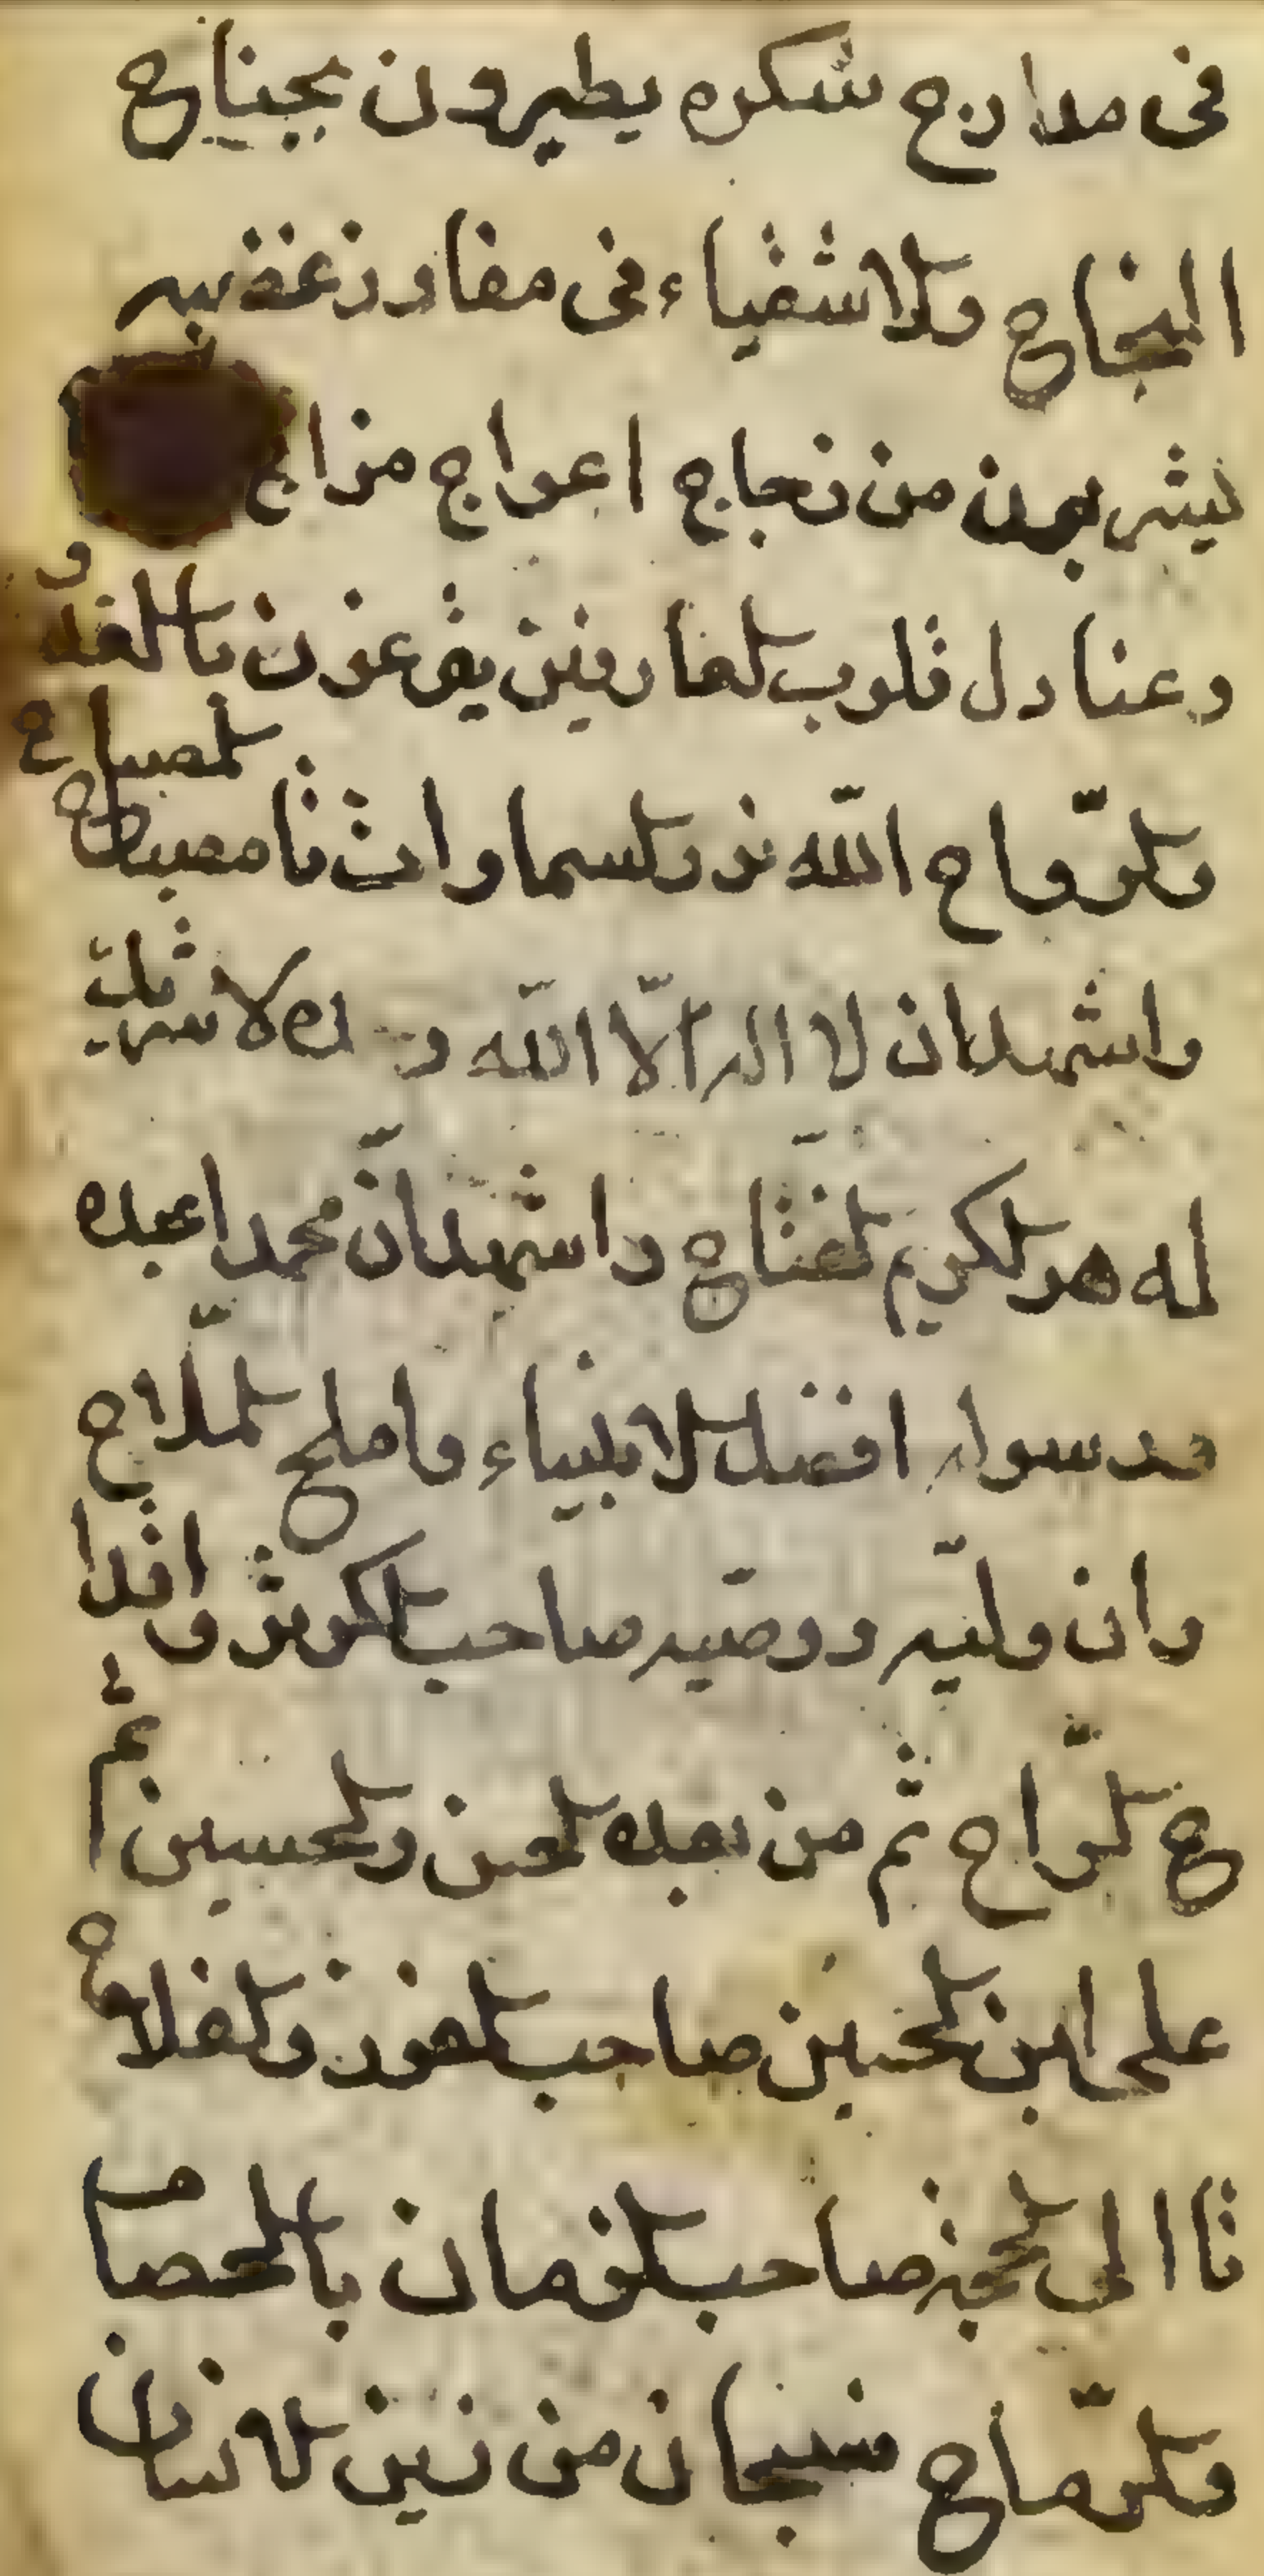 في مدارج شكره يطيرون بجناح
النجاح والاشقياء في مفاوز غضبه
يشربون من زجاج اعواج مزاج
وعنادل قلوب العارفين يقرعون بالغدو
والرواح الله نور السماوات نا مصباح المصباح
واشهد ان لا اله الا الله وحده لا شريك
له هو الكريم الفتاح واشهد انّ محمدا عبده
ورسوله افضل الانبياء واملح الملّاح
وان وليّه ووصيّه صاحب الكوثر واقدا
ح الرّاح ثم من بعده الحسن والحسين ثم
علي ابن الحسين صاحب الفوز والفلاح
تا الى الحجة صاحب الزمان بالحصام
والرّماح سبحان من زين الانسان